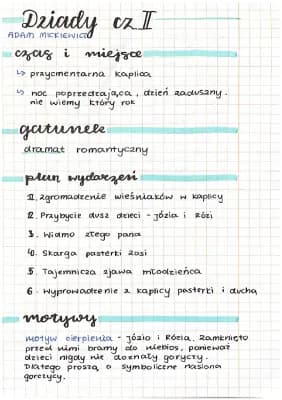 Dziady cz II
ADAM MICKIEWICZ
czas i miejsce
↳ przycmentarna kaplica
↳ noc poprzedzająca, dzień zaduszny.
nie wiemy który rok
gatunek
dramat romantyczny
plan wydarzeń
1. zgromadzenie wieśniaków w kaplicy
2. Przybycie dusz dzieci - Józia i Rózi
3. Widmo złego pana
4. Skarga pasterki Zosi
5. Tajemnicza zjawa młodzieńca
6. Wyprowadzenie z kaplicy pasterki i ducha
motywy
motyw cierpienia - Józio i Rózia. Zamknięto
przed nimi bramy do niebios, ponieważ
dzieci nigdy nie doznały goryczy.
Dlatego proszą o symboliczne nasiona
gorczycy.